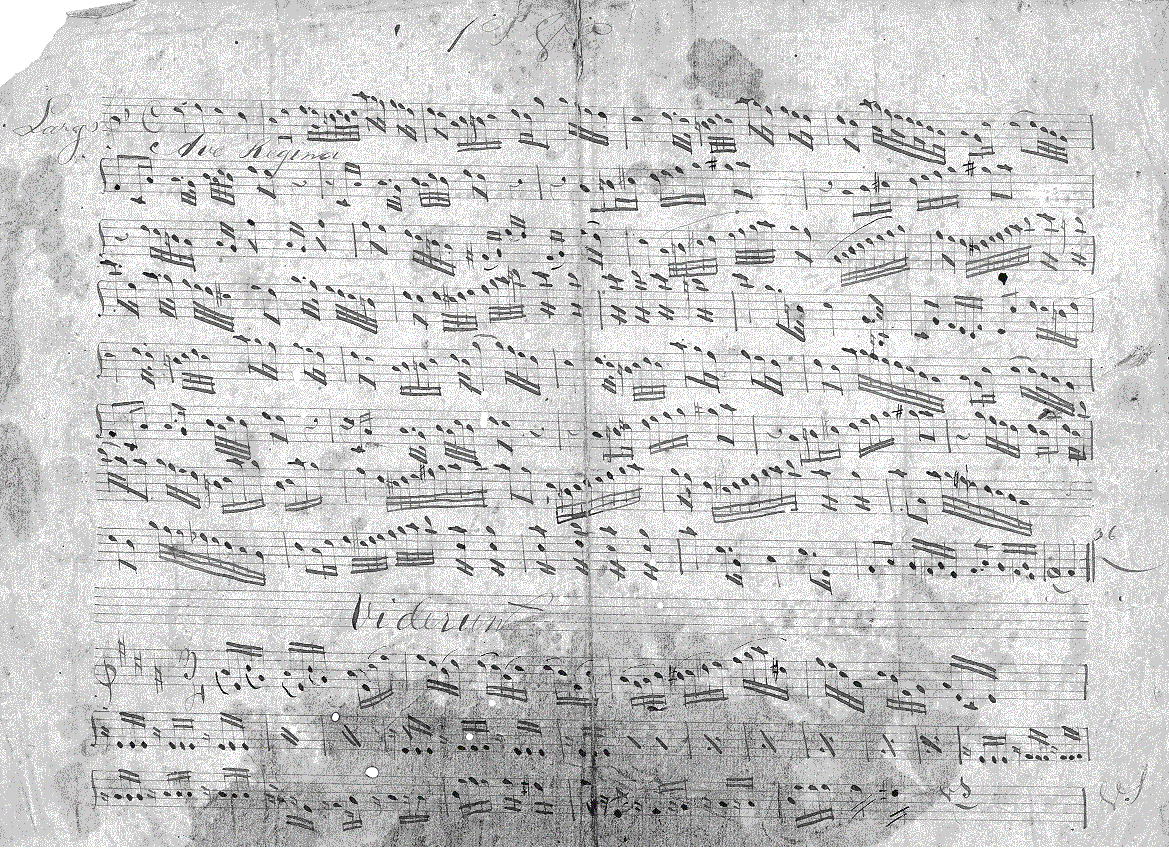 Largo
Ave Regina
36
Viderunt